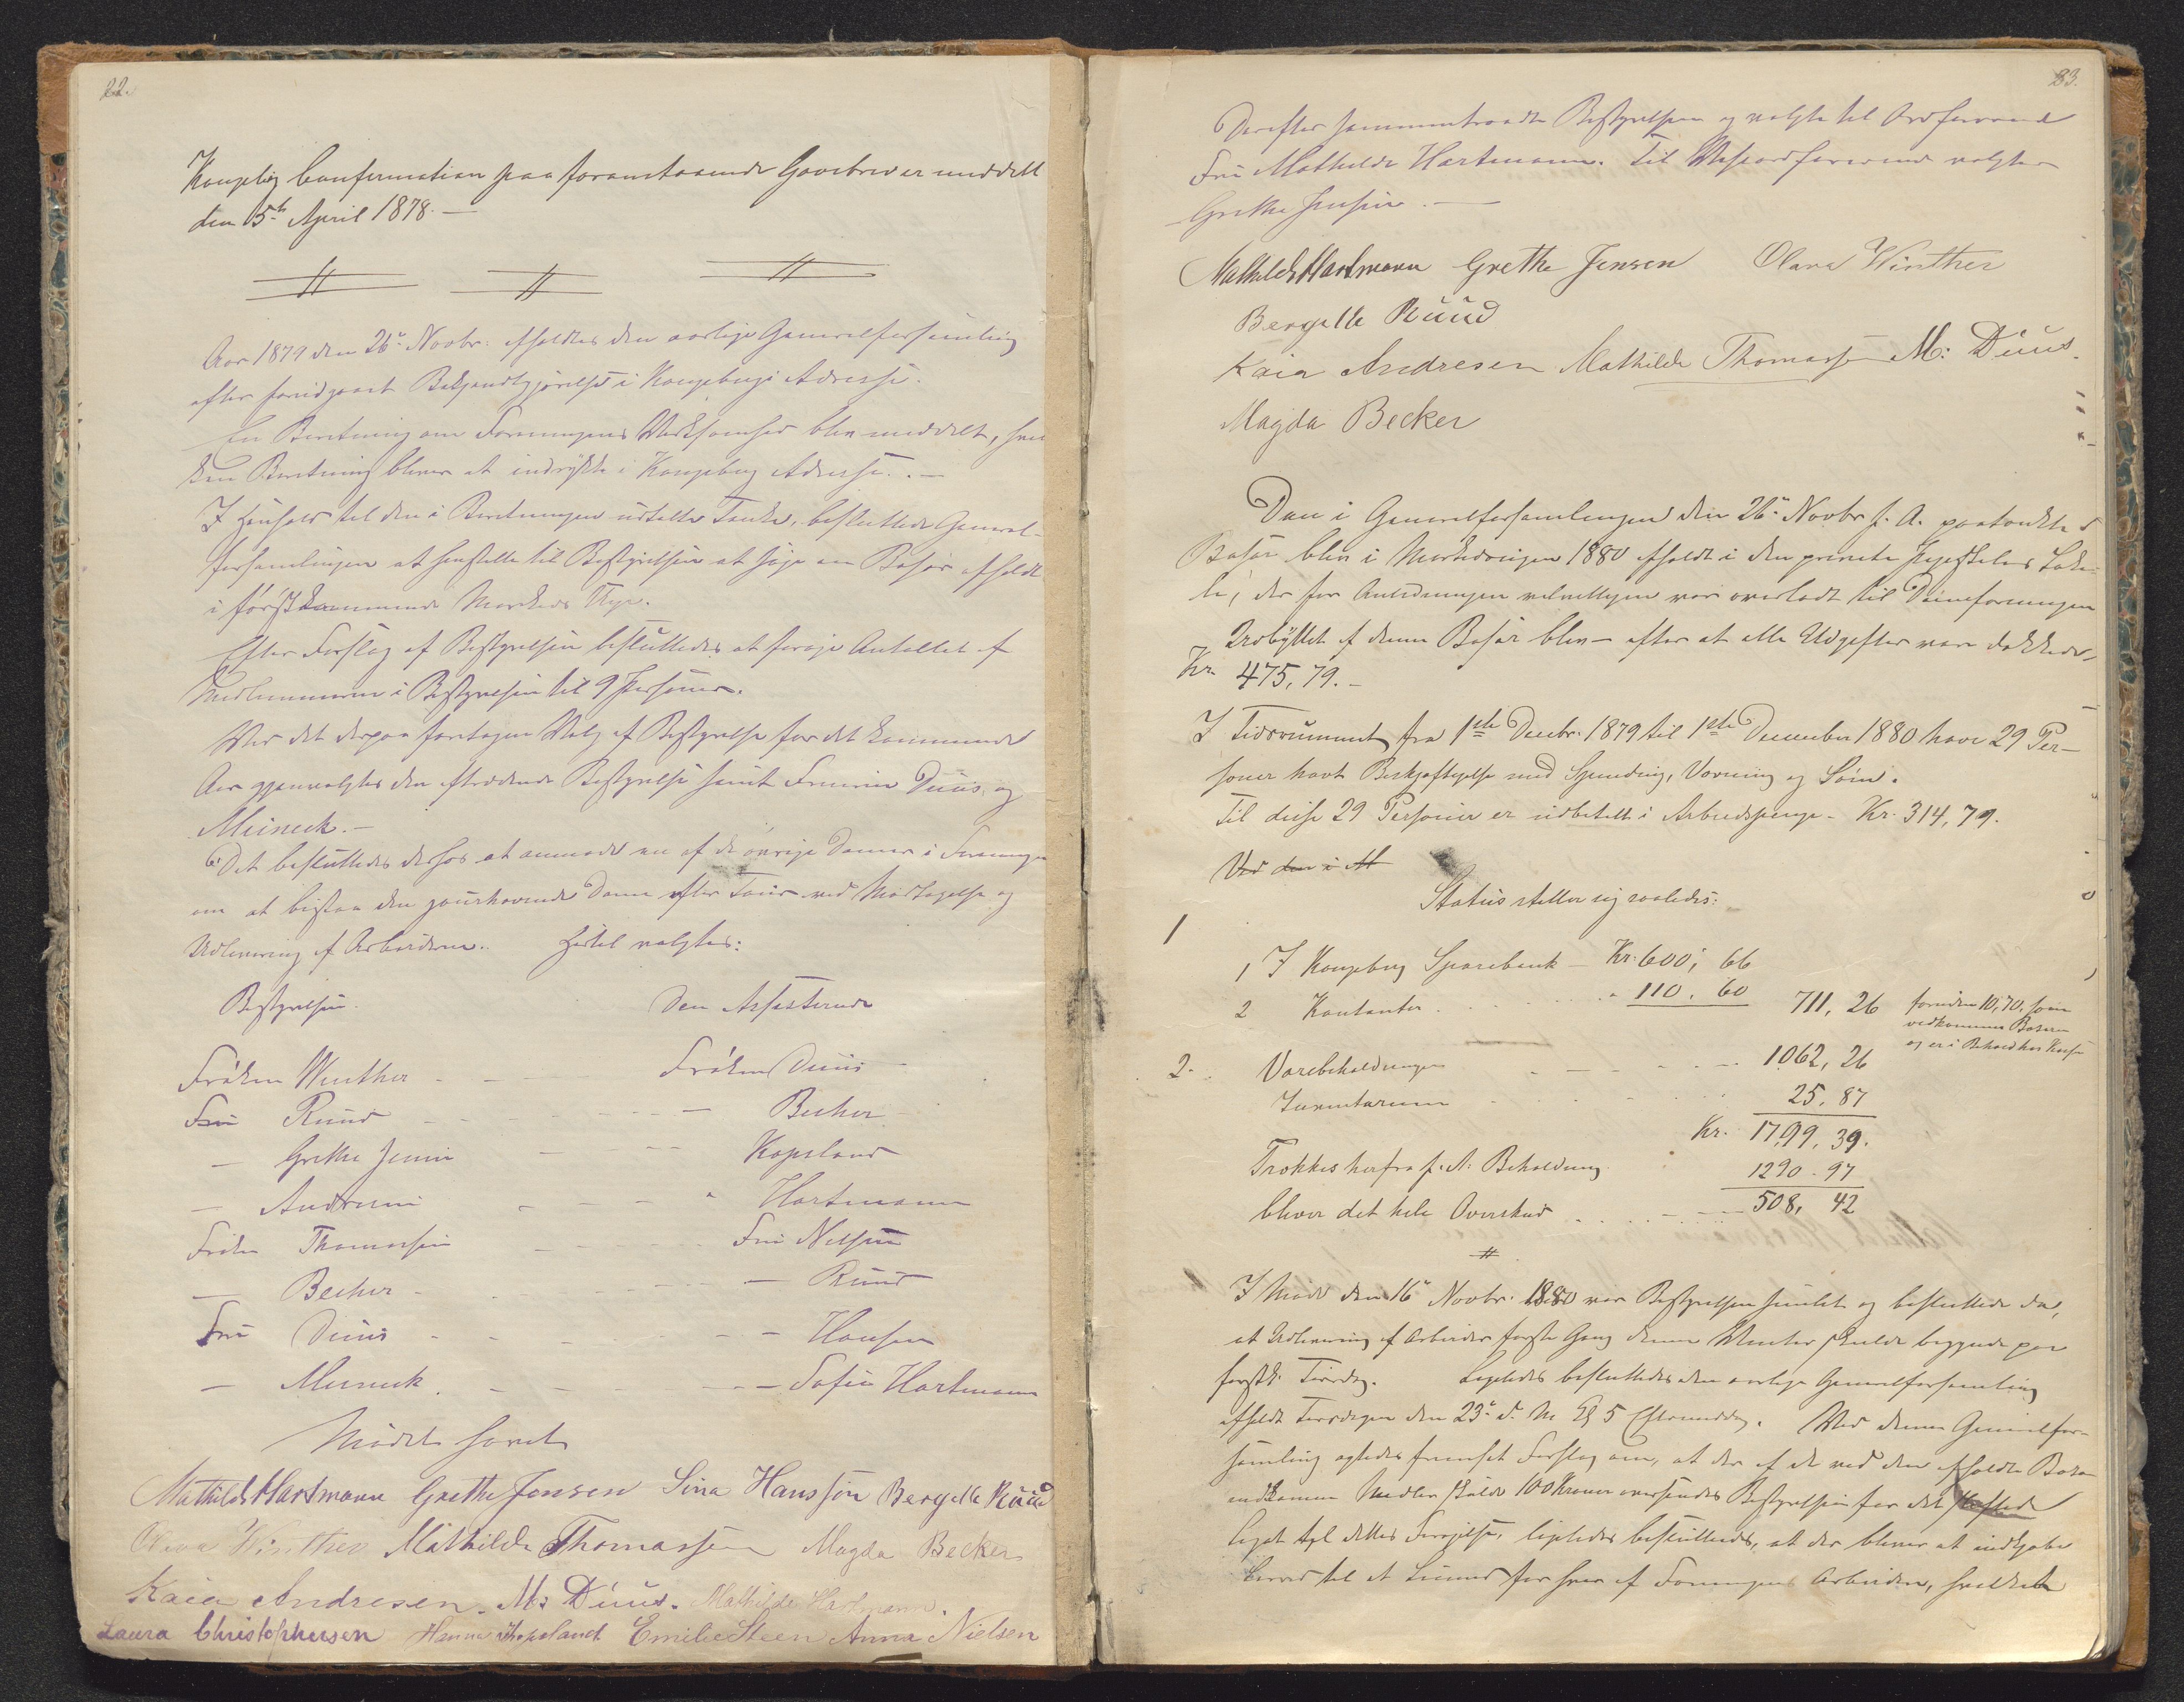 22.
Kongelig Confirmation paa foranstaaende Gavebrev er meddelt
den 5te April 1878. —
Aar 1879 den 26de Novbr. afholdtes den aarlige Generalforsamling
efter foreidgaaet Bekjendtgjørelse i Kongsbergs Adresse.
En Beretning om Foreningens Virksomhed blev meddelt, hvil
ken Beretning bliver at indrykke i Kongsberg Adresse. —
I Henhold til den i Beretningen udtalte Tanke, besluttede General-
forsamlingen at henstille til Bestyrelsen at søge en Basar afholdt
i førstkommende Markeds Uge.
Efter Forslag af Bestyrelsen besluttedes at forøge Antallet af
Medlemmerne i Bestyrelsen til 9 Personer.
Ved det derpaa foretagne Valg af Bestyrelse for det kommende
Aar gjenvalgtes den aftrædende Bestyrelse samt Fruerne Duus og
Meineck. —
Det besluttedes derhos at anmode en af de øvrige Damer i Foreningen
om at bistaa den jourhavende Dame efter Tour ved Modtagelse og
Udlevering af Arbeiderne. Hertil valgtes:
Bestyrelsen. Den Assisterende
Frøken Winther - - Frøken Duus
Fru Ruud - - - Becker
— Grethe Jensen - - Kopsland
— Andresen - - " Hartmann
Frøken Thomassen - - Fru Nielsen
— Becker - - — Ruud
Fru Duus - - - Hansen
— Meineck - - — Sofie Hartmann
Mødet hævet
Mathilde Hartmann Grethe Jensen Sina Hanssen Bergitte Ruud
Olava Winther Mathilde Thomassen Magda Becker
Kaia Andresen. M: Duus. Mathilde Hartmann.
Laura Christophersen Hanna Kopsland Emilie Steen Anna Nielsen
23.
Derefter sammentraadte Bestyrelsen og valgte til Ordførende
Fru Mathilde Hartmann. Til Viceordførende valgtes
Grethe Jensen. —
Mathilde Hartmann Grethe Jensen Olava Winther
Bergitte Ruud
Kaia Andresen Mathilde Thomassen M: Duus.
Magda Becker
Den i Generalforsamlingen den 26de Novbr f. A. paatænkte
Basar blev i Markedsugen 1880 afholdt i den private Pigeskoles Loka-
le, der for Anledningen velvilligen var overladt til Dameforeningen
Udbyttet af denne Basar blev — efter at alle Udgifter vare dækkede —
Kr. 475,79. —
I Tidsrummet fra 1ste Decbr. 1879 til 1ste December 1880 have 29 Per-
soner havt Beskjæftigelse med Spinding, Vævning og Søm.
Til disse 29 Personer er udbetalt i Arbeidspenge - Kr. 314,79.
Ved den i M
Status stiller sig saaledes:
1
1 I Kongsberg Sparebank — Kr. 600, 66
2 Kontanter . . . . " 110. 60 711, 26 foruden 10,70, som
vedkommer Basaren
og er i Behold hos Kassen
2. Varebeholdningen - - - 1062, 26
Inventarium . . . . 25. 87
Kr. 1799, 39.
Trækkes herfra f. A. Beholdning 1290 - 97
bliver det hele Overskud . . . - - 508, 42
I Møde den 16de Novbr. 1880 var Bestyrelsen samlet og besluttede da,
at Udlevering af Arbeider første Gang denne Vinter skulde begynde paa
førstk. Tirsdag. Ligeledes besluttedes den aarlige Generalforsamling
afholdt Tirsdagen den 23de d. M. Kl 5 Eftermiddag. Ved denne Generalfor-
samling agtedes fremsat Forslag om, at der af de ved den afholdte Basar
indkomne Midler skulde 100 Kroner oversendes Bestyrelsen for det
Legat til dettes Forøgelse, ligeledes besluttedes, at der bliver at indkjøbe
til et for hver af Foreningens Arbeidere, hvilket